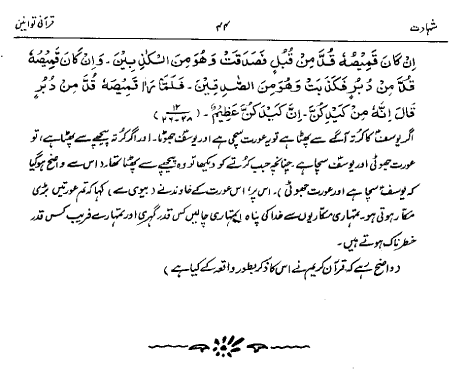 شہادت ۳۴ قرآنی قوانین
اِنْ كَانَ قَمِيْصُهٗ قُدَّ مِنْ قُبُلٍ فَصَدَقَتْ وَهُوَ مِنَ الْكٰذِبِيْنَ۔ وَاِنْ كَانَ قَمِيْصُهٗ
قُدَّ مِنْ دُبُرٍ فَكَذَبَتْ وَهُوَ مِنَ الصّٰدِقِيْنَ۔ فَلَمَّا رَاٰ قَمِيْصَهٗ قُدَّ مِنْ دُبُرٍ
قَالَ اِنَّهٗ مِنْ كَيْدِكُنَّ۔ اِنَّ كَيْدَكُنَّ عَظِيْمٌ۔ (۱۲/۲۶-۲۸)
اگر یوسفؑ کا کرتہ آگے سے پھٹا ہے تو یہ عورت سچی ہے اور یوسف جھوٹا۔ اور اگر کرتہ پیچھے سے پھٹا ہے، تو
عورت جھوٹی اور یوسفؑ سچا ہے۔ چنانچہ جب کرتے کو دیکھا تو وہ پیچھے سے پھٹا تھا۔ اور اس سے واضح ہوگیا
کہ یوسفؑ سچا ہے اور عورت جھوٹی)۔ اس پر اس عورت کے خاوند نے (بیوی سے) کہا کہ تم عورتیں بڑی
مکار ہوتی ہو۔ تمہاری مکاریوں سے خدا کی پناہ! تمہاری چالیں کس قدر گہری اور تمہارے فریب کس قدر
خطرناک ہوتے ہیں۔
(واضح رہے کہ قرآن کریم نے اس کا ذکر بطور واقعہ کے کیا ہے)